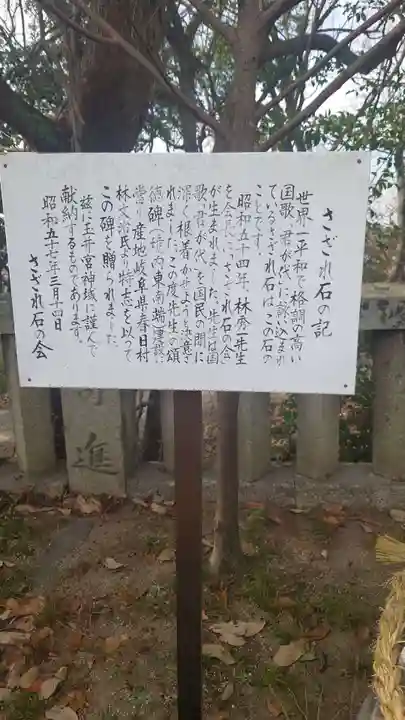 さざれ石の記
世界一平和で格調の高い
国歌「君が代」に詠み込まれ
ているさざれ石は、この石の
ことです。
昭和五十四年、林秀一先生
を会長に「さざれ石の会」
が生まれました。先生は国
歌「君が代」を国民の間に
深く根着かせようと注意さ
れました。この度先生の頌
徳碑(境内東南端建設に
当り産地岐阜県春日村
林 氏が特志を以って
この碑を贈られました。
茲に玉井宮神域に謹んで
献納するものであります。
昭和五十七年三月十四日
さざれ石の会
進